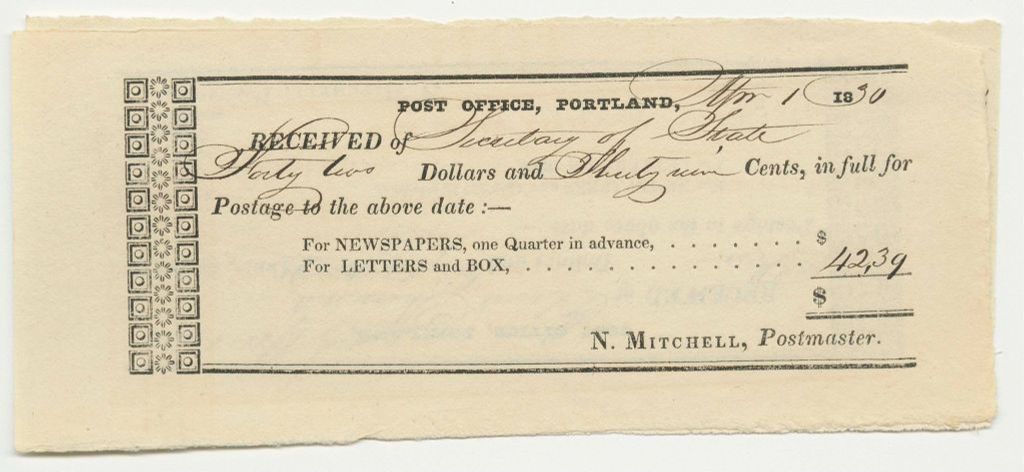 POST OFFICE, PORTLAND, Apr 1 1830
RECEIVED of Secretary of State
Forty two Dollars and Thirty nine Cents, in full for
Postage to the above date :—
For NEWSPAPERS, one Quarter in advance, . . . . . . . $
For LETTERS and BOX, . . . . . . . . . . . . . . 42,39
$
N. MITCHELL, Postmaster.